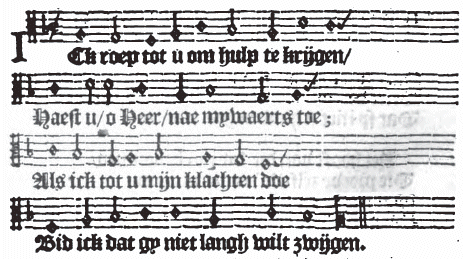 ICk roep tot u om hulp te krijgen/
Haest u/o Heer/nae mywaerts toe;
Als ick tot u mijn klachten doe
Bid ick dat gy niet langh wilt zwijgen.